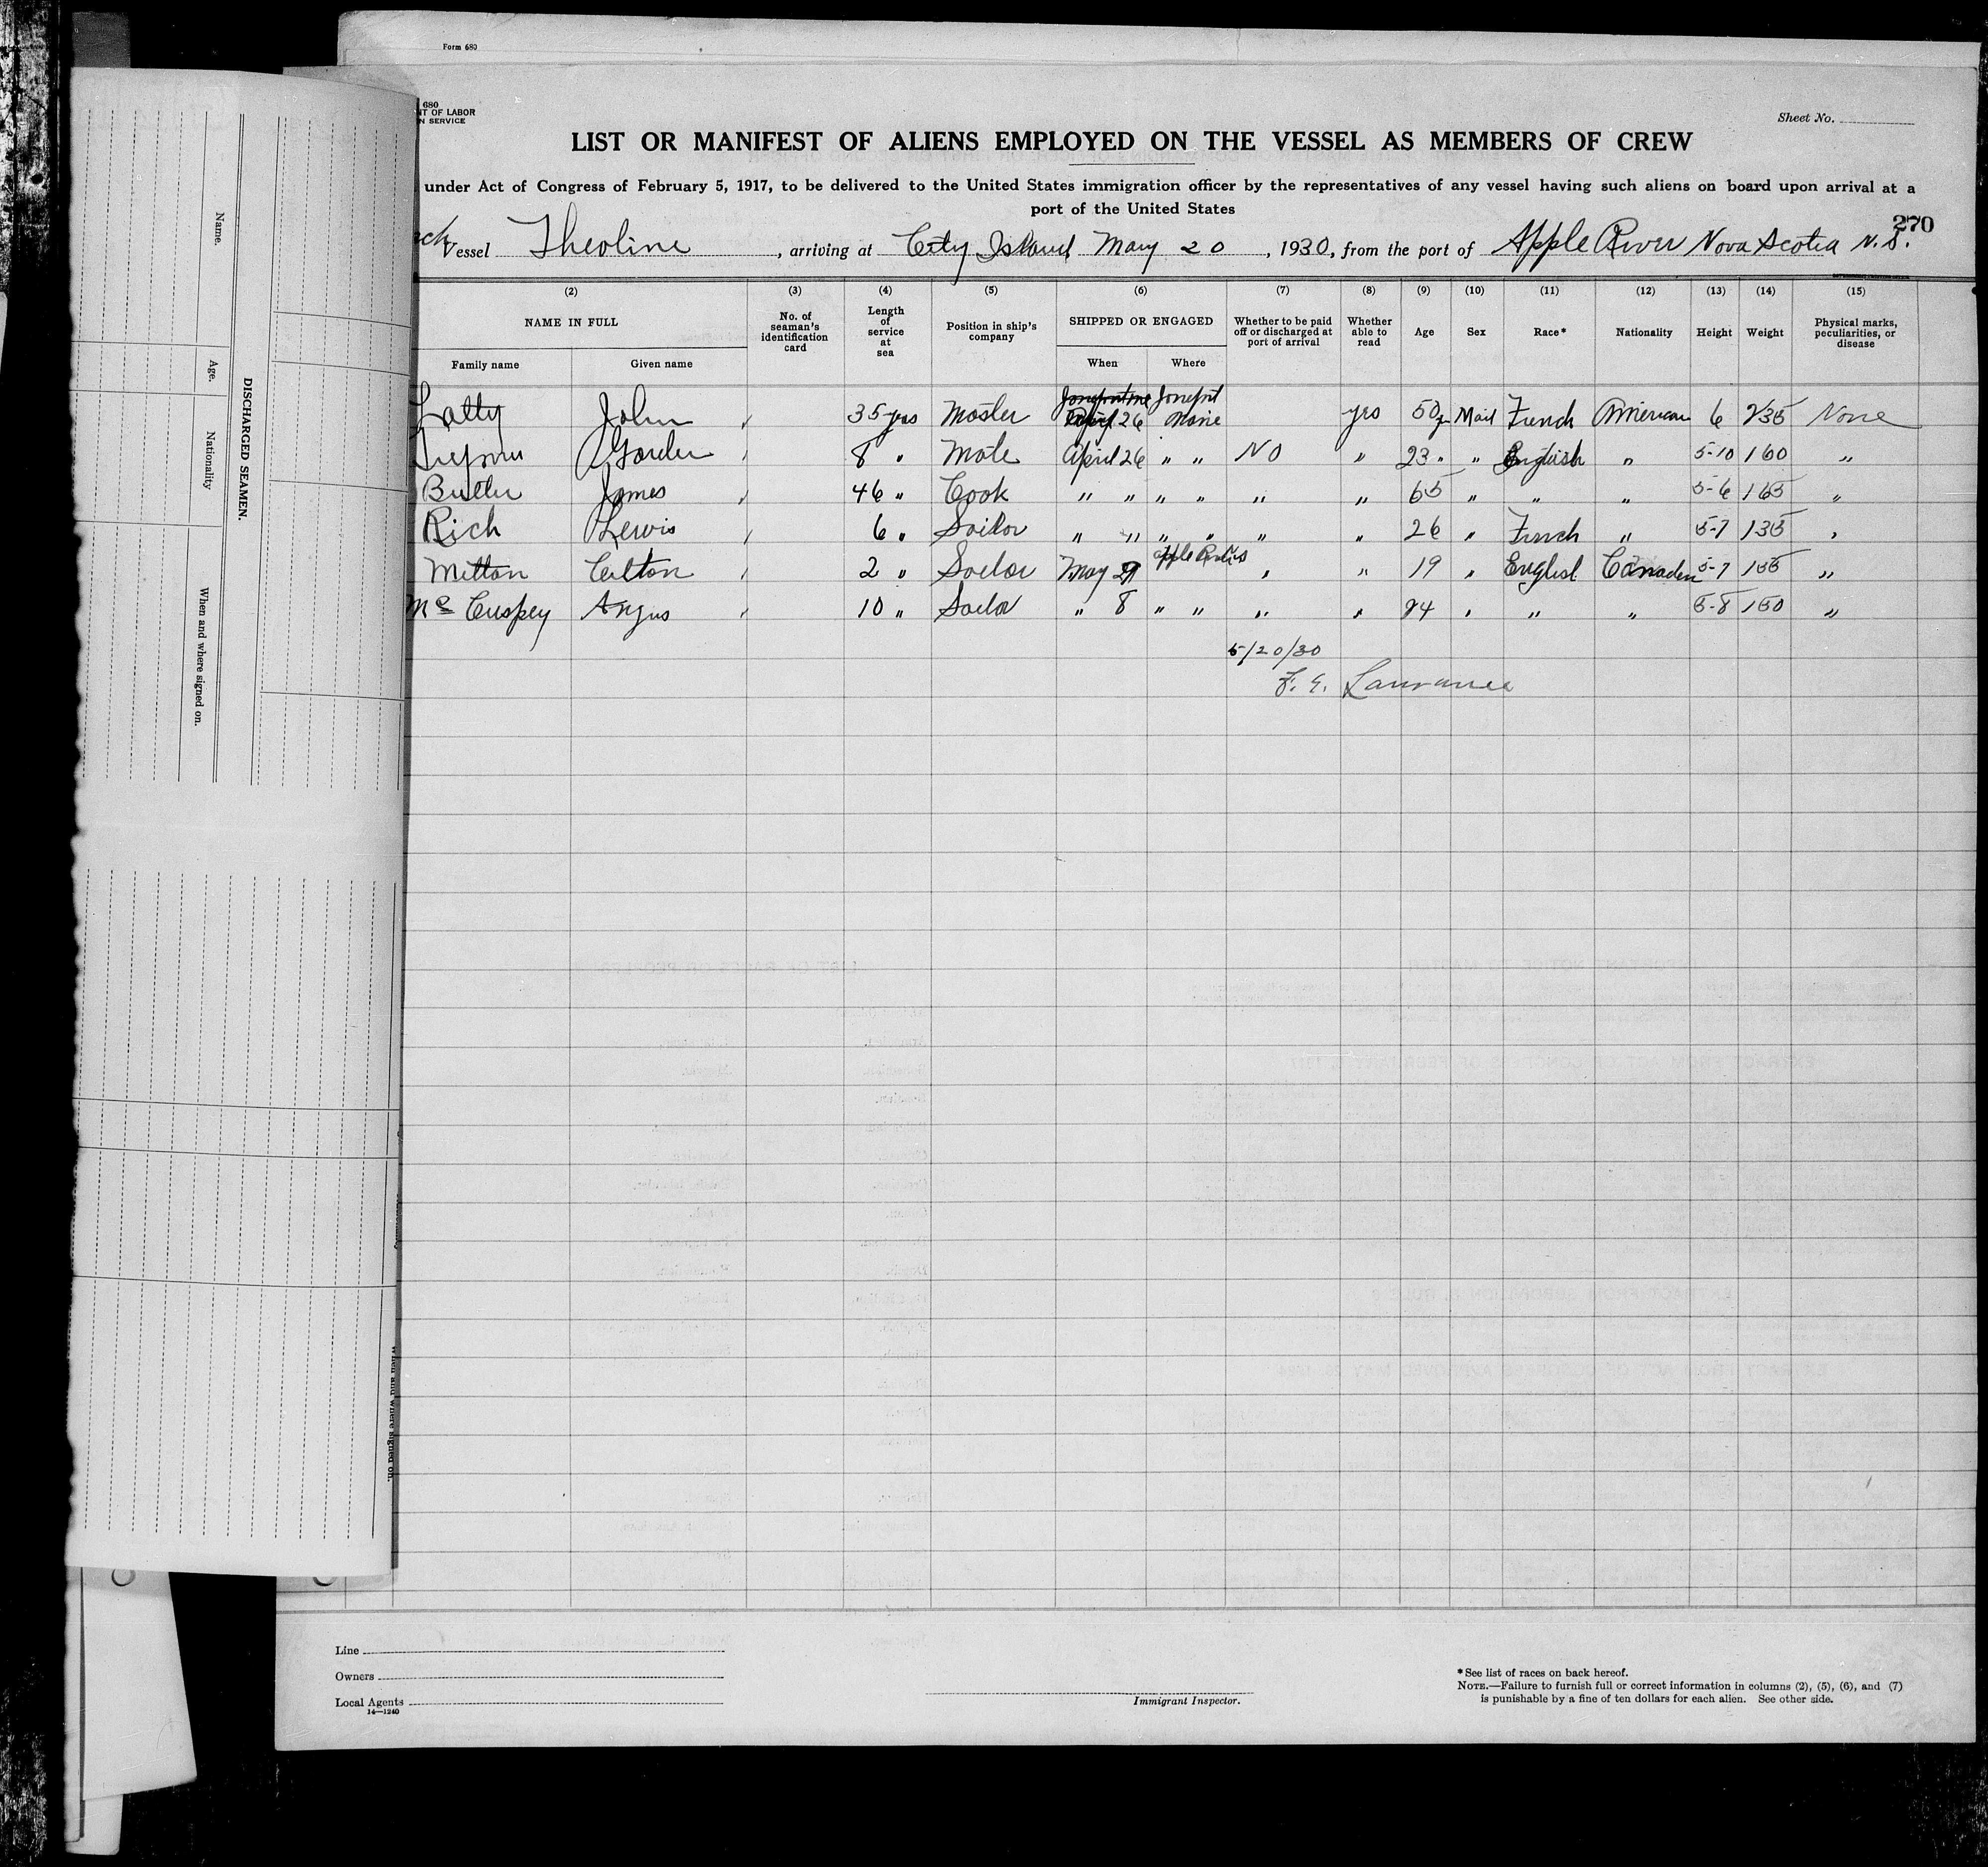 Form 680
680
NT OF LABOR
N SERVICE
Sheet No.
LIST OR MANIFEST OF ALIENS EMPLOYED ON THE VESSEL AS MEMBERS OF CREW
under Act of Congress of February 5, 1917, to be delivered to the United States immigration officer by the representatives of any vessel having such aliens on board upon arrival at a
port of the United States
270
Vessel Theoline, arriving at City Island May 20, 1930, from the port of Apple River Nova Scotia N.S.
(2) (3) (4) (5) (6) (7) (8) (9) (10) (11) (12) (13) (14) (15)
NAME IN FULL No. of seaman's identification card Length of service at sea Position in ship's company SHIPPED OR ENGAGED Whether to be paid off or discharged at port of arrival Whether able to read Age Sex Race* Nationality Height Weight Physical marks, peculiarities, or disease
Family name Given name When Where
John 35 yrs Master 26 Maine yes 50 Mail French American 6 235 None
8 " Mate April 26 " " NO " 23 " " English " 5-10 160 "
Butler James 46 " Cook " " " " " " 65 " " " 5-6 165 "
Rich Lewis 6 " Sailor " " " " " " 26 " French " 5-7 135 "
Mitton 2 " Sailor May Apple " " 19 " English 5-7 "
Angus 10 " Sailor " 8 " " " " " " " 5-8 150 "
5/20/30
DISCHARGED SEAMEN.
Name.
Age.
Nationality
When and where signed on.
When and where signed on.
Line
Owners
Local Agents
14—1240
Immigrant Inspector.
*See list of races on back hereof.
NOTE.—Failure to furnish full or correct information in columns (2), (5), (6), and (7)
is punishable by a fine of ten dollars for each alien. See other side.